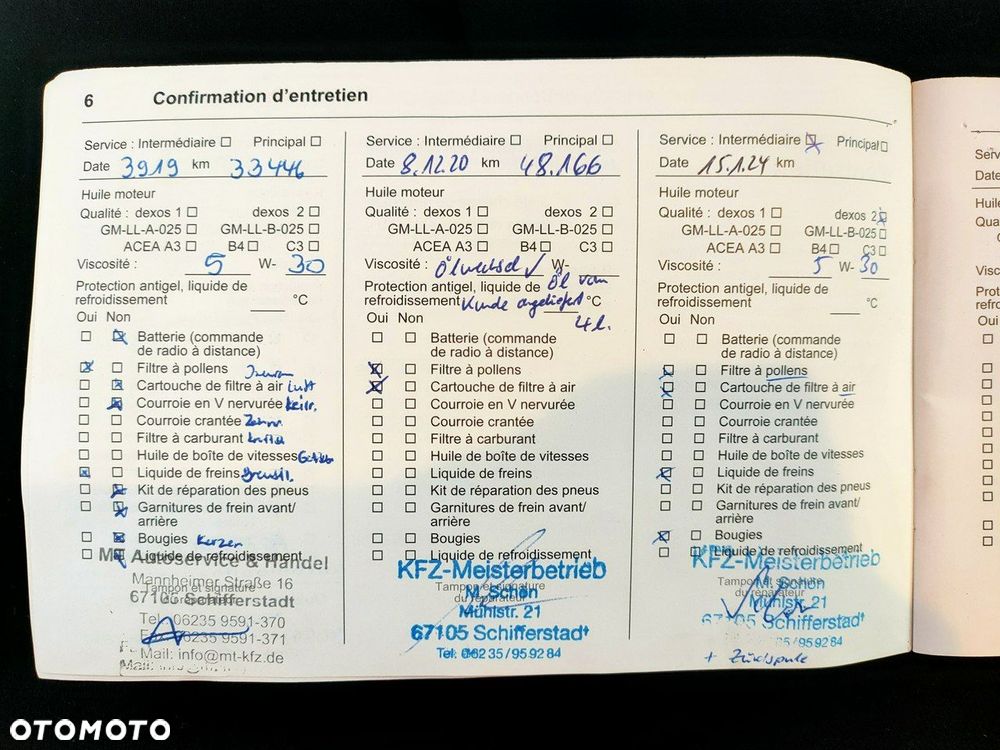 6 Confirmation d'entretien
Service : Intermédiaire ☐ Principal ☐
Date 3919 km 33446
Huile moteur
Qualité : dexos 1 ☐ dexos 2 ☐
GM-LL-A-025 ☐ GM-LL-B-025 ☐
ACEA A3 ☐ B4 ☐ C3 ☐
Viscosité : 5 W- 30
Protection antigel, liquide de
refroidissement °C
Oui Non
Batterie (commande
de radio à distance)
Filtre à pollens
Cartouche de filtre à air Luft
Courroie en V nervurée Keilr.
Courroie crantée
Filtre à carburant
Huile de boîte de vitesses
Liquide de freins
Kit de réparation des pneus
Garnitures de frein avant/
arrière
Bougies Kerzen
Liquide de refroidissement
MT Autoservice & Handel
Mannheimer Straße 16
Tampon et signature
67105 Schifferstadt
Tel. 06235 9591-370
06235 9591-371
Mail: info@mt-kfz.de
Service : Intermédiaire ☐ Principal ☐
Date 8.12.20 km 48.166
Huile moteur
Qualité : dexos 1 ☐ dexos 2 ☐
GM-LL-A-025 ☐ GM-LL-B-025 ☐
ACEA A3 ☐ B4 ☐ C3 ☐
Viscosité : Ölwechsel ✓ W-
Protection antigel, liquide de Öl vom
refroidissement Kunde angeliefert °C
4 l.
Oui Non
Batterie (commande
de radio à distance)
Filtre à pollens
Cartouche de filtre à air
Courroie en V nervurée
Courroie crantée
Filtre à carburant
Huile de boîte de vitesses
Liquide de freins
Kit de réparation des pneus
Garnitures de frein avant/
arrière
Bougies
Liquide de refroidissement
KFZ-Meisterbetrieb
Tampon et signature
M. Schön
du réparateur
Mühlstr. 21
67105 Schifferstadt
Tel. 06235/959284
Service : Intermédiaire ☒ Principal ☐
Date 15.1.24 km
Huile moteur
Qualité : dexos 1 ☐ dexos 2 ☒
GM-LL-A-025 ☐ GM-LL-B-025 ☐
ACEA A3 ☐ B4 ☐ C3 ☐
Viscosité : 5 W- 30
Protection antigel, liquide de
refroidissement °C
Oui Non
Batterie (commande
de radio à distance)
Filtre à pollens
Cartouche de filtre à air
Courroie en V nervurée
Courroie crantée
Filtre à carburant
Huile de boîte de vitesses
Liquide de freins
Kit de réparation des pneus
Garnitures de frein avant/
arrière
Bougies
Liquide de refroidissement
KFZ-Meisterbetrieb
Tampon et signature
M. Schön
du réparateur
Mühlstr. 21
67105 Schifferstadt
35/959284
+ Zündspule
Serv
Date
Huile
Qual
Visc
Prot
refro
Oui
OTOMOTO